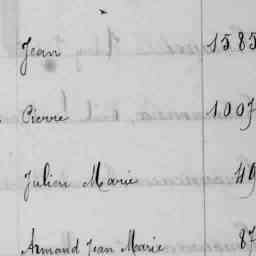 Jean 1585
Pierre 1007
Julien Marie
Armand Jean Marie 87